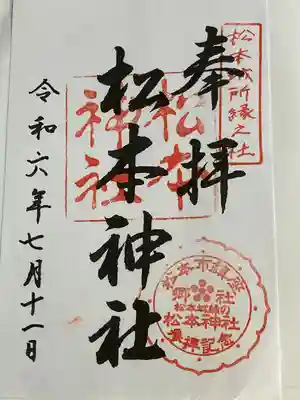 松本城所縁之社
奉拝
松本
神社
松本神社
松本市鎮座
郷社
松本城鎮の
松本神社
参拝記念
令和六年七月十一日